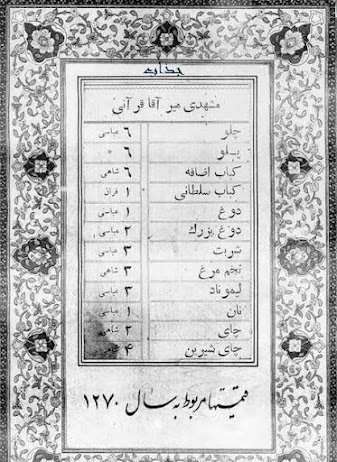 جذاب
مشهدی میر آقا قرآنی
چلو ۶ عباسی
پلو ۶ "
کباب اضافه ۶ شاهی
کباب سلطانی ۱ قران
دوغ ۱ عباسی
دوغ بزرك ۲ عباسی
شربت ۳ عباسی
تخم مرغ ۳ شاهی
لیموناد ۳ عباسی
نان ۱ عباسی
چای ۲ شاهی
چای شیرین ۴ شاهی
قیمتها مربوط به سال ۱۲۷۰